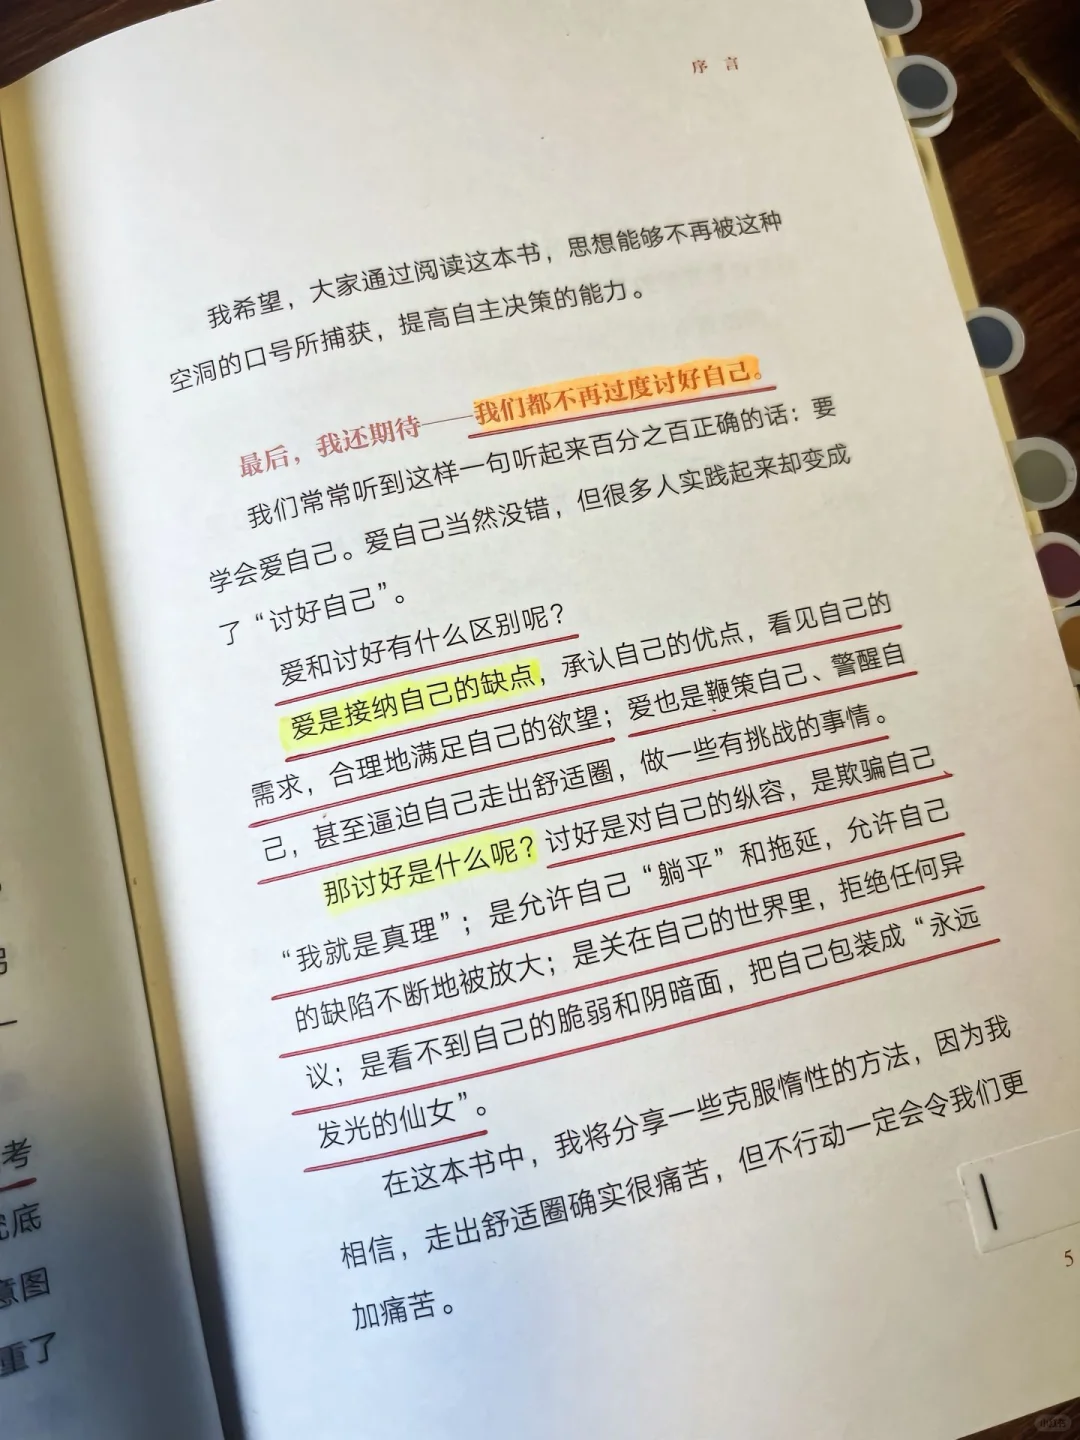 序 言
我希望，大家通过阅读这本书，思想能够不再被这种
空洞的口号所捕获，提高自主决策的能力。
最后，我还期待——我们都不再过度讨好自己。
我们常常听到这样一句听起来百分之百正确的话：要
学会爱自己。爱自己当然没错，但很多人实践起来却变成
了“讨好自己”。
爱和讨好有什么区别呢？
爱是接纳自己的缺点，承认自己的优点，看见自己的
需求，合理地满足自己的欲望；爱也是鞭策自己、警醒自
己，甚至逼迫自己走出舒适圈，做一些有挑战的事情。
那讨好是什么呢？讨好是对自己的纵容，是欺骗自己、
“我就是真理”；是允许自己“躺平”和拖延，允许自己
的缺陷不断地被放大；是关在自己的世界里，拒绝任何异
议；是看不到自己的脆弱和阴暗面，把自己包装成“永远
发光的仙女”。
在这本书中，我将分享一些克服惰性的方法，因为我
相信，走出舒适圈确实很痛苦，但不行动一定会令我们更
加痛苦。
5
考
底
意图
重了
小红书